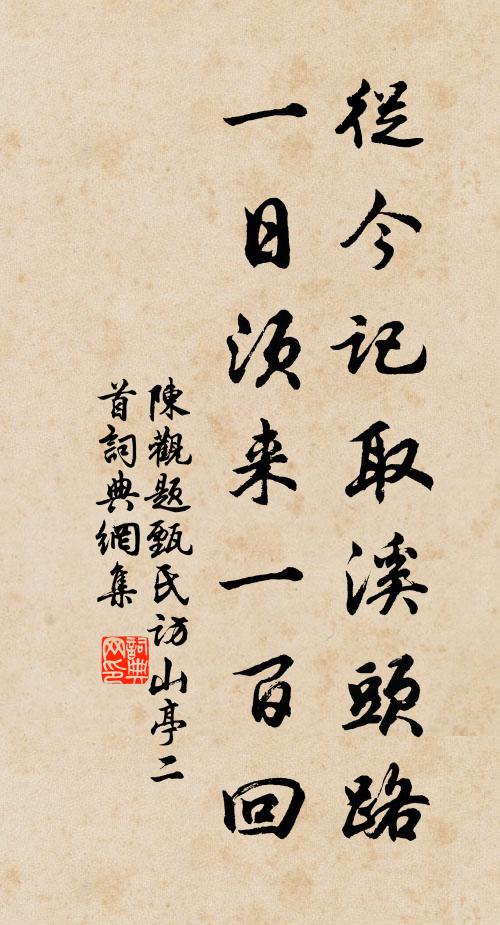 從今記取溪頭路
一日須来一百回
陳觀題甄氏訪山亭二
首詞典網集
詞典
网印